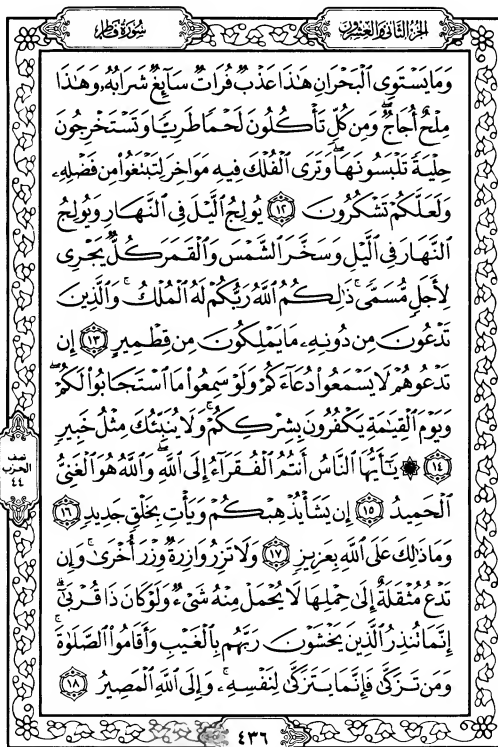 الجزء الثاني والعشرون
سورة فاطر
وَمَا يَسْتَوِى ٱلْبَحْرَانِ هَـٰذَا عَذْبٌ فُرَاتٌ سَآئِغٌ شَرَابُهُۥ وَهَـٰذَا
مِلْحٌ أُجَاجٌ ۖ وَمِن كُلٍّ تَأْكُلُونَ لَحْمًا طَرِيًّا وَتَسْتَخْرِجُونَ
حِلْيَةً تَلْبَسُونَهَا ۖ وَتَرَى ٱلْفُلْكَ فِيهِ مَوَاخِرَ لِتَبْتَغُوا۟ مِن فَضْلِهِۦ
وَلَعَلَّكُمْ تَشْكُرُونَ ١٢ يُولِجُ ٱلَّيْلَ فِى ٱلنَّهَارِ وَيُولِجُ
ٱلنَّهَارَ فِى ٱلَّيْلِ وَسَخَّرَ ٱلشَّمْسَ وَٱلْقَمَرَ كُلٌّ يَجْرِى
لِأَجَلٍ مُّسَمًّى ۚ ذَٰلِكُمُ ٱللَّهُ رَبُّكُمْ لَهُ ٱلْمُلْكُ ۚ وَٱلَّذِينَ
تَدْعُونَ مِن دُونِهِۦ مَا يَمْلِكُونَ مِن قِطْمِيرٍ ١٣ إِن
تَدْعُوهُمْ لَا يَسْمَعُوا۟ دُعَآءَكُمْ وَلَوْ سَمِعُوا۟ مَا ٱسْتَجَابُوا۟ لَكُمْ ۖ
وَيَوْمَ ٱلْقِيَـٰمَةِ يَكْفُرُونَ بِشِرْكِكُمْ ۚ وَلَا يُنَبِّئُكَ مِثْلُ خَبِيرٍ
١٤ ۞ يَـٰٓأَيُّهَا ٱلنَّاسُ أَنتُمُ ٱلْفُقَرَآءُ إِلَى ٱللَّهِ ۖ وَٱللَّهُ هُوَ ٱلْغَنِىُّ
ٱلْحَمِيدُ ١٥ إِن يَشَأْ يُذْهِبْكُمْ وَيَأْتِ بِخَلْقٍ جَدِيدٍ ١٦
وَمَا ذَٰلِكَ عَلَى ٱللَّهِ بِعَزِيزٍ ١٧ وَلَا تَزِرُ وَازِرَةٌ وِزْرَ أُخْرَىٰ ۚ وَإِن
تَدْعُ مُثْقَلَةٌ إِلَىٰ حِمْلِهَا لَا يُحْمَلْ مِنْهُ شَىْءٌ وَلَوْ كَانَ ذَا قُرْبَىٰٓ ۗ
إِنَّمَا تُنذِرُ ٱلَّذِينَ يَخْشَوْنَ رَبَّهُم بِٱلْغَيْبِ وَأَقَامُوا۟ ٱلصَّلَوٰةَ ۚ
وَمَن تَزَكَّىٰ فَإِنَّمَا يَتَزَكَّىٰ لِنَفْسِهِۦ ۚ وَإِلَى ٱللَّهِ ٱلْمَصِيرُ ١٨
نصف
الحزب
٤٤
٤٣٦